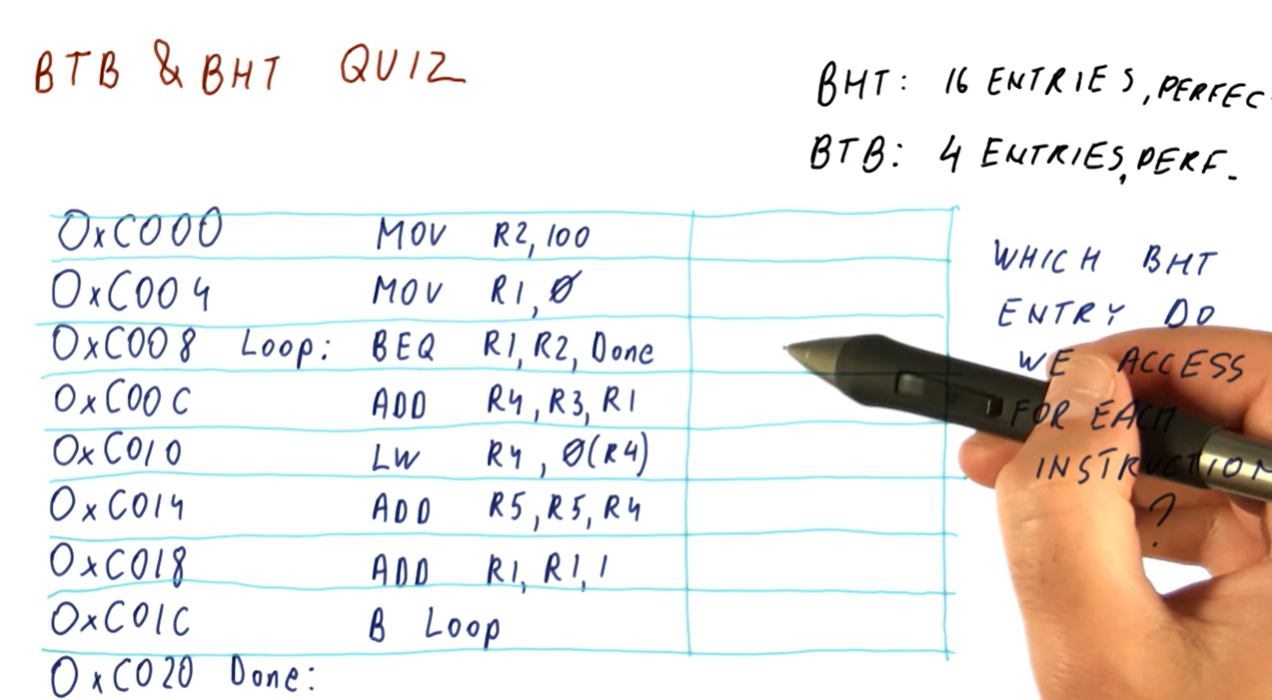 BTB & BHT QUIZ
BHT: 16 ENTRIES, PERFEC
BTB: 4 ENTRIES, PERF.
0xC000 MOV R2, 100
0xC004 MOV R1, 0
0xC008 Loop: BEQ R1, R2, Done
0xC00C ADD R4, R3, R1
0xC010 LW R4, 0(R4)
0xC014 ADD R5, R5, R4
0xC018 ADD R1, R1, 1
0xC01C B Loop
0xC020 Done:
WHICH BHT
ENTRY DO
WE ACCESS
FOR EACH
INSTRUCTION
?